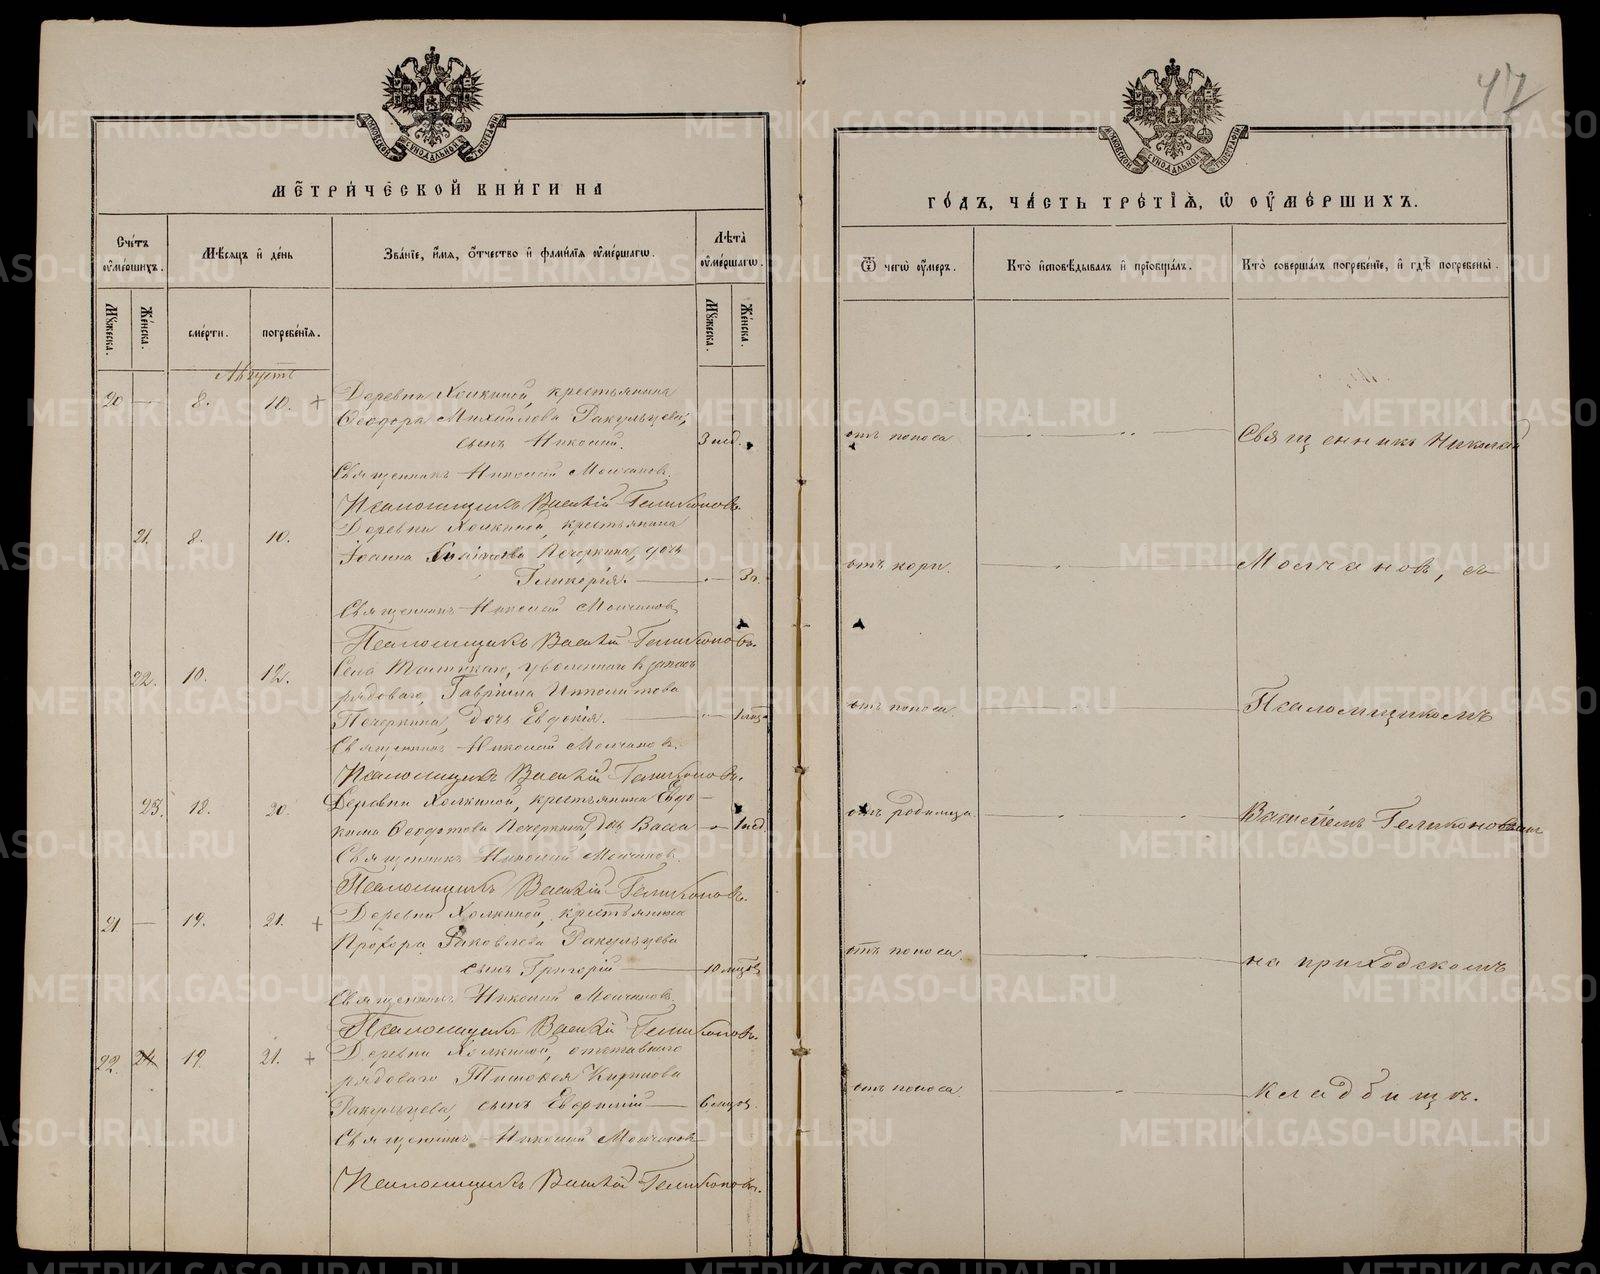 42
МОСКОВСКОЙ СѴНОДАЛЬНОЙ ТИПОГРАФІИ
МЕТРИЧЕСКОЙ КНИГИ НА
Счетъ умершихъ.
Мѣсяцъ и день
Званіе, имя, отчество и фамилія умершагѡ.
Лѣта умершагѡ.
Мꙋжеска.
Женска.
смерти.
погребенія.
Мꙋжеска.
Женска.
Августъ
20 — 8. 10. + Деревни Холкиной, крестьянина
Ѳеодора Михайлова Ракульцева,
сынъ Николай. 3 нед.
Священникъ Николай Молчановъ.
Псаломщикъ Василій Геликоновъ.
21. 8. 10. Деревни Холкиной, крестьянина
Іоанна Печеркина, дочь
Гликерія. — " — 3 г.
Священникъ Николай Молчановъ
Псаломщикъ Василій Геликоновъ.
22. 10. 12. Села уволеннаго въ запасъ
рядоваго, Гавріила Ипполитова
Печеркина, дочь Евдокія. — " — 1 мца
Священникъ Николай Молчановъ.
Псаломщикъ Василій Геликоновъ.
23. 18. 20. Деревни Холкиной, крестьянина Евдо-
кима Ѳеодотова Печеркина, дочь Васса — " — 1 нед.
Священникъ Николай Молчановъ.
Псаломщикъ Василій Геликоновъ.
21 — 19. 21. + Деревни Холкиной, крестьянина
Прохора Яковлева Ракульцева
сынъ Григорій — 10 мцовъ
Священникъ Николай Молчановъ.
Псаломщикъ Василій Геликоновъ.
22. 24 19 21. + Деревни Холкиной, отставнаго
рядоваго Тимофея Кирилова
Ракульцева, сынъ — 6 мцов.
Священникъ Николай Молчановъ
Псаломщикъ Василій Геликоновъ.
МОСКОВСКОЙ СѴНОДАЛЬНОЙ ТИПОГРАФІИ
ГОДЪ, ЧАСТЬ ТРЕТІѦ, Ѡ ОУМЕРШИХЪ.
Ѿ чегѡ умеръ.
Кто исповѣдывалъ и пріобщалъ.
Кто совершалъ погребеніе, и гдѣ погребены.
отъ поноса — Священникъ Николай
отъ кори. — Молчановъ, съ
отъ поноса. — Псаломщикомъ
отъ родимца — Василіемъ Геликоновымъ
отъ поноса. — на приходскомъ
отъ поноса — кладбищѣ.
METRIKI.GASO-URAL.RU